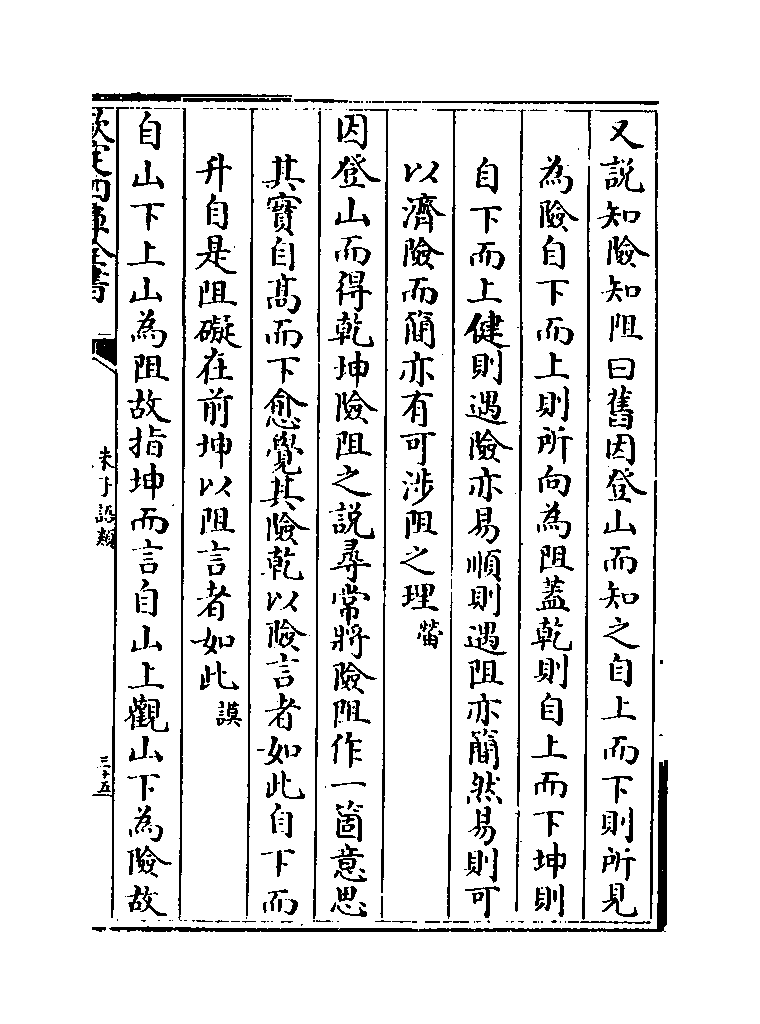 又說知險知阻曰舊因登山而知之自上而下則所見
為險自下而上則所向為阻蓋乾則自上而下坤則
自下而上健則遇險亦易順則遇阻亦簡然易則可
以濟險而簡亦有可涉阻之理㽦
因登山而得乾坤險阻之說尋常將險阻作一箇意思
其實自髙而下愈覺其險乾以險言者如此自下而
升自是阻礙在前坤以阻言者如此謨
自山下上山為阻故指坤而言自山上觀山下為險故
欽定四庫全書
朱子語類
三十五